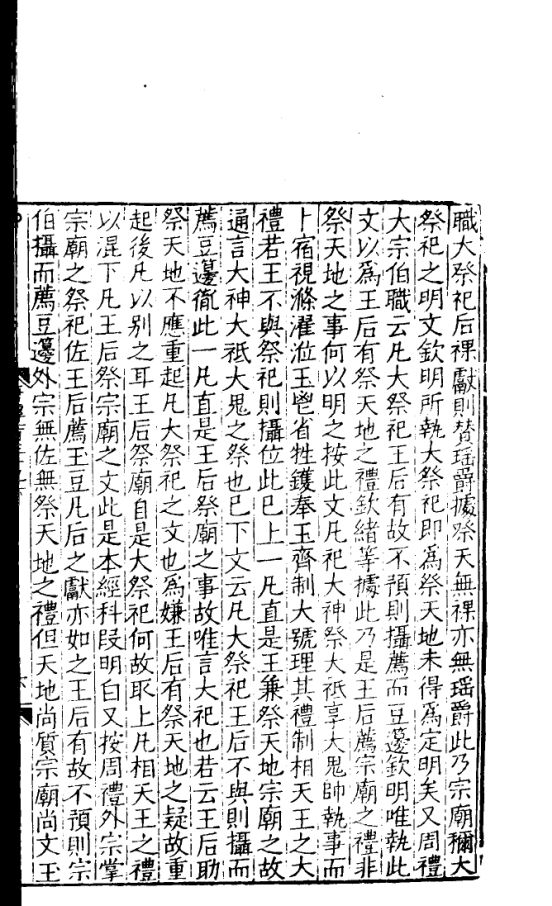 職大祭祀后祼獻則賛瑶爵據祭天無祼亦無瑶爵此乃宗廟稱大
祭祀之明文欽明所執大祭祀即爲祭天地未得爲定明矣又周禮
大宗伯職云凡大祭祀王后有故不預則攝薦而豆籩欽明唯執此
文以爲王后有祭天地之禮欽緒等據此乃是王后薦宗廟之禮非
祭天地之事何以明之按此文凡祀大神祭大祇享大鬼帥執事而
卜宿視滌濯涖玉鬯省牲鑊奉玉齊制大號理其禮制相天王之大
禮若王不與祭祀則攝位此已上一凡直是王兼祭天地宗廟之故
通言大神大祇大鬼之祭也已下文云凡大祭祀王后不與則攝而
薦豆籩徹此一凡直是王后祭廟之事故唯言大祀也若云王后助
祭天地不應重起凡大祭祀之文也爲嫌王后有祭天地之疑故重
起後凡以别之耳王后祭廟自是大祭祀何故取上凡相天王之禮
以混下凡王后祭宗廟之文此是本經科段明白又按周禮外宗掌
宗廟之祭祀佐王后薦玉豆凡后之獻亦如之王后有故不預則宗
伯攝而薦豆籩外宗無佐無祭天地之禮但天地尚質宗廟尚文玉